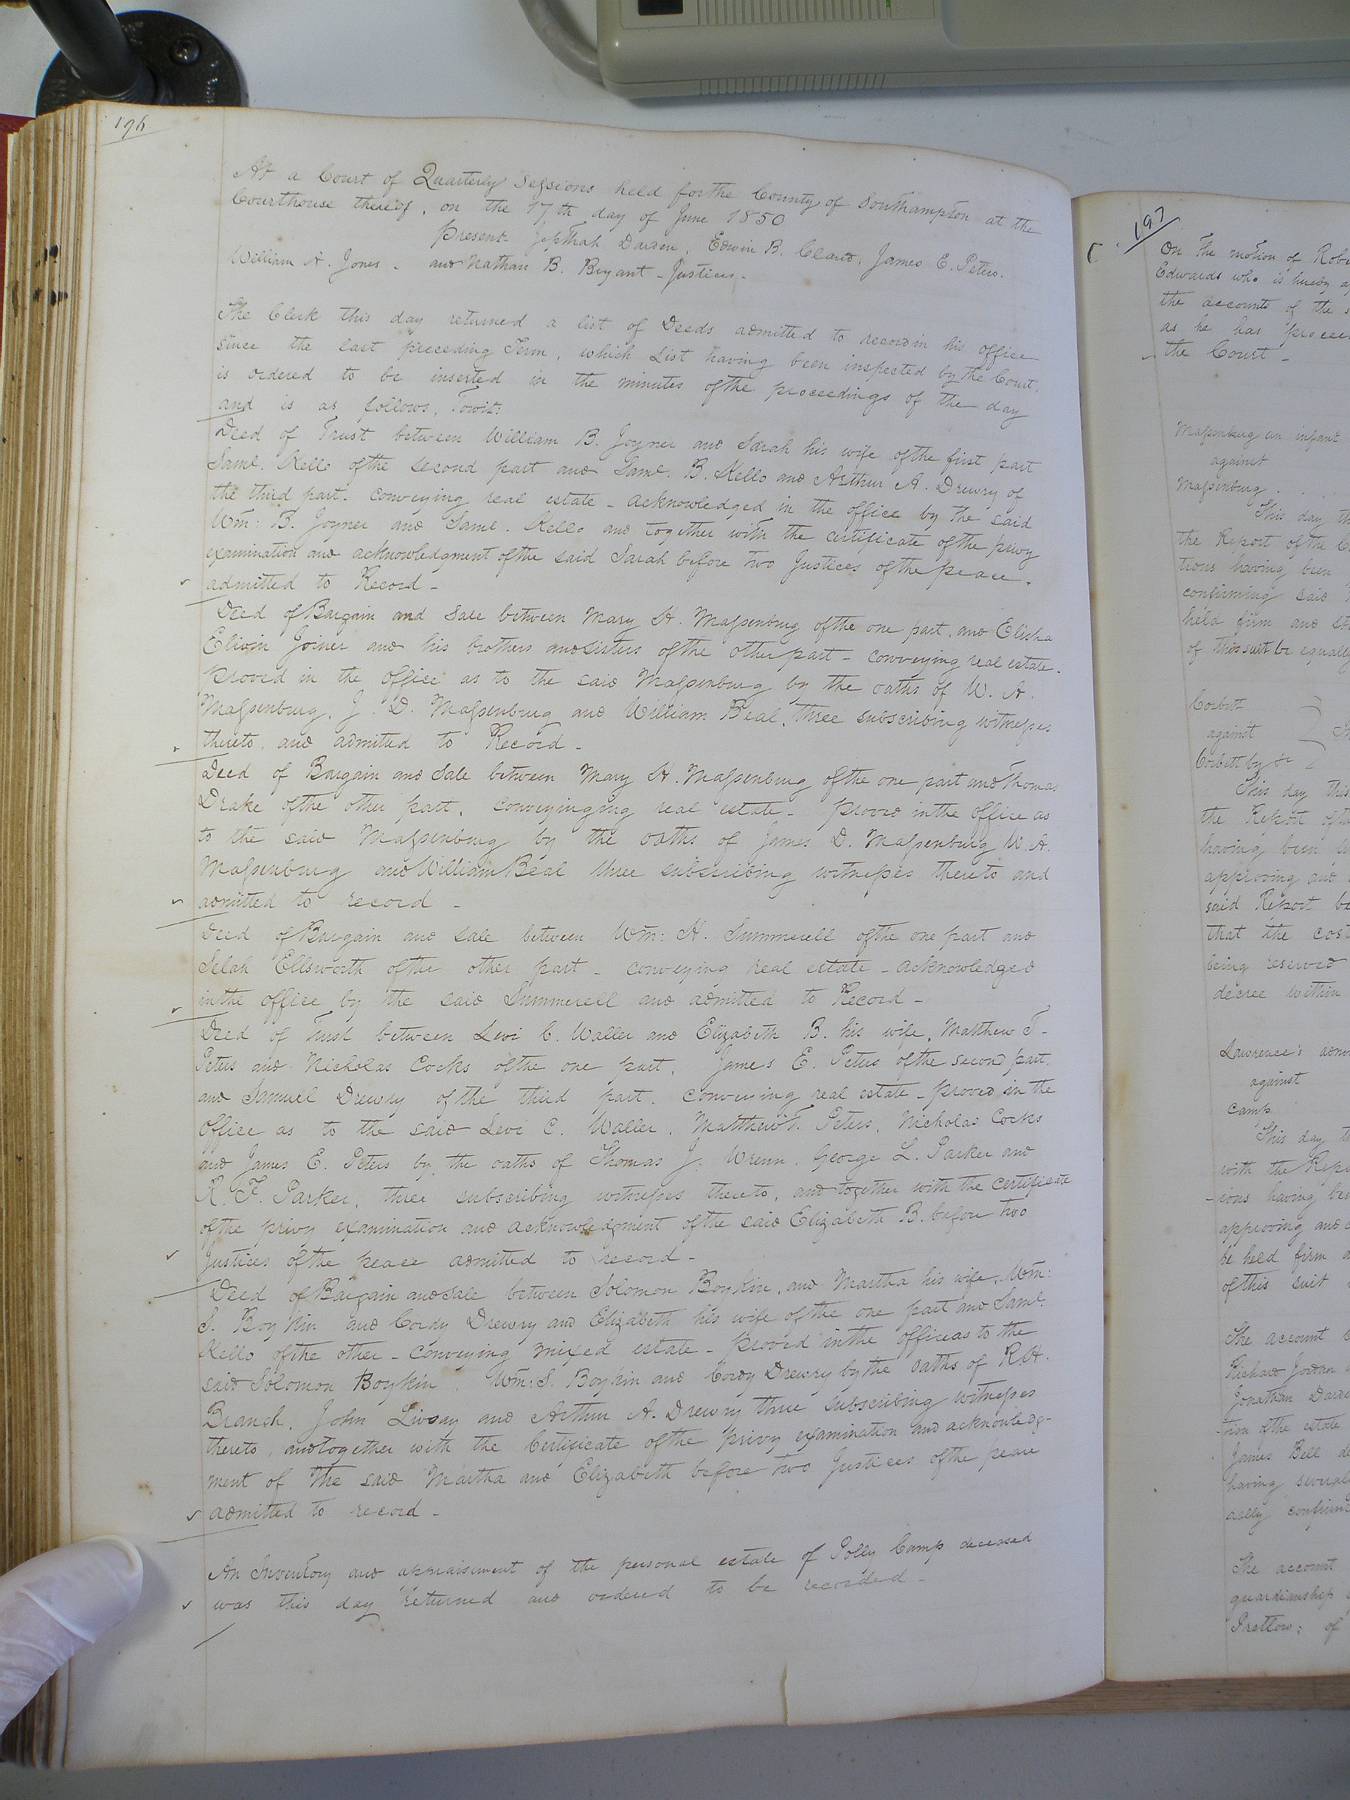 196
At a Court of Quarterly Sessions held for the County of Southampton at the
Courthouse thereof, on the 17th day of June 1850
Present Jepthah Darden, Edwin B. Claud, James E. Peters.
William A. Jones. and Nathan B. Bryant Justices.
The Clerk this day returned a list of Deeds admitted to record in his office
since the last preceding Term, which List having been inspected by the Court,
is ordered to be inserted in the minutes of the proceedings of the day
and is as follows, Towit:
Deed of Trust between William B. Joyner and Sarah his wife of the first part
Saml. Kello of the second part and Saml. B. Kello and Arthur A. Drewry of
the third part. conveying real estate - acknowledged in the office by the said
Wm: B. Joyner and Saml. Kello and together with the certificate of the privy
examination and acknowledgment of the said Sarah before two Justices of the peace.
admitted to Record -
Deed of Bargain and Sale between Mary H. Massenburg of the one part, and Elisha
Joiner and his brothers and sisters of the other part - conveying real estate.
Proved in the office as to the said Massenburg by the oaths of W. A.
Massenburg, J. D. Massenburg and William Beal, three subscribing witnesses
thereto, and admitted to Record -
Deed of Bargain and Sale between Mary H. Massenburg of the one part and Thomas
Drake of the other part, conveyinging real estate - proved in the office as
to the said Massenburg by the oaths of James D. Massenburg W. A.
Massenburg and William Beal three subscribing witnesses thereto and
admitted to record -
Deed of Bargain and Sale between Wm: H. Summerell of the one part and
Selah Ellsworth of the other part - conveying real estate - acknowledged
in the office by the said Summerell and admitted to Record -
Deed of Trust between Levi C. Waller and Elizabeth B. his wife, Matthew T.
Peters and Nicholas Cocks of the one part, James E. Peters of the second part
and Samuel Drewry of the third part. conveying real estate - proved in the
Office as to the said Levi C. Waller, Matthew T. Peters, Nicholas Cocks
and James E. Peters by the oaths of Thomas J. Wrenn, George L. Parker and
R. F. Parker, three subscribing witnesses thereto, and together with the certificate
of the privy examination and acknowledgment of the said Elizabeth B. before two
Justices of the peace admitted to record -
Deed of Bargain and Sale between Solomon Boykin, and Martha his wife, Wm:
S. Boykin and Cordy Drewry and Elizabeth his wife of the one part and Saml.
Kello of the other - conveying mixed estate - proved in the office as to the
said Solomon Boykin, Wm: S. Boykin and Cordy Drewry by the oaths of R. H.
Branch, John Livsay and Arthur A. Drewry three subscribing witnesses
thereto, and together with the Certificate of the privy examination and acknowledg-
ment of the said Martha and Elizabeth before two Justices of the peace
admitted to record -
An Inventory and appraisement of the personal estate of Polly Camp deceased
was this day returned and ordered to be recorded -
197
On the motion of
Edwards who is hereby
the accounts of the
as he has
the Court -
Massenburg an infant
against
Massenburg
This day
the Report of the
tions having been
confirming said
held firm and
of this suit be equally
Corbitt
against
Corbitt by &c
This day this
the Report of
having been
approving and
said Report be
that the
being reserved
decree within
Lawrence's
against
Camp
This day
with the
ions having
approving and
be held firm
of this suit
The account
Richard Jordan
Jonathan
tion of the estate
James Bell
having
ally
The account
guardianship
Pretlow; of